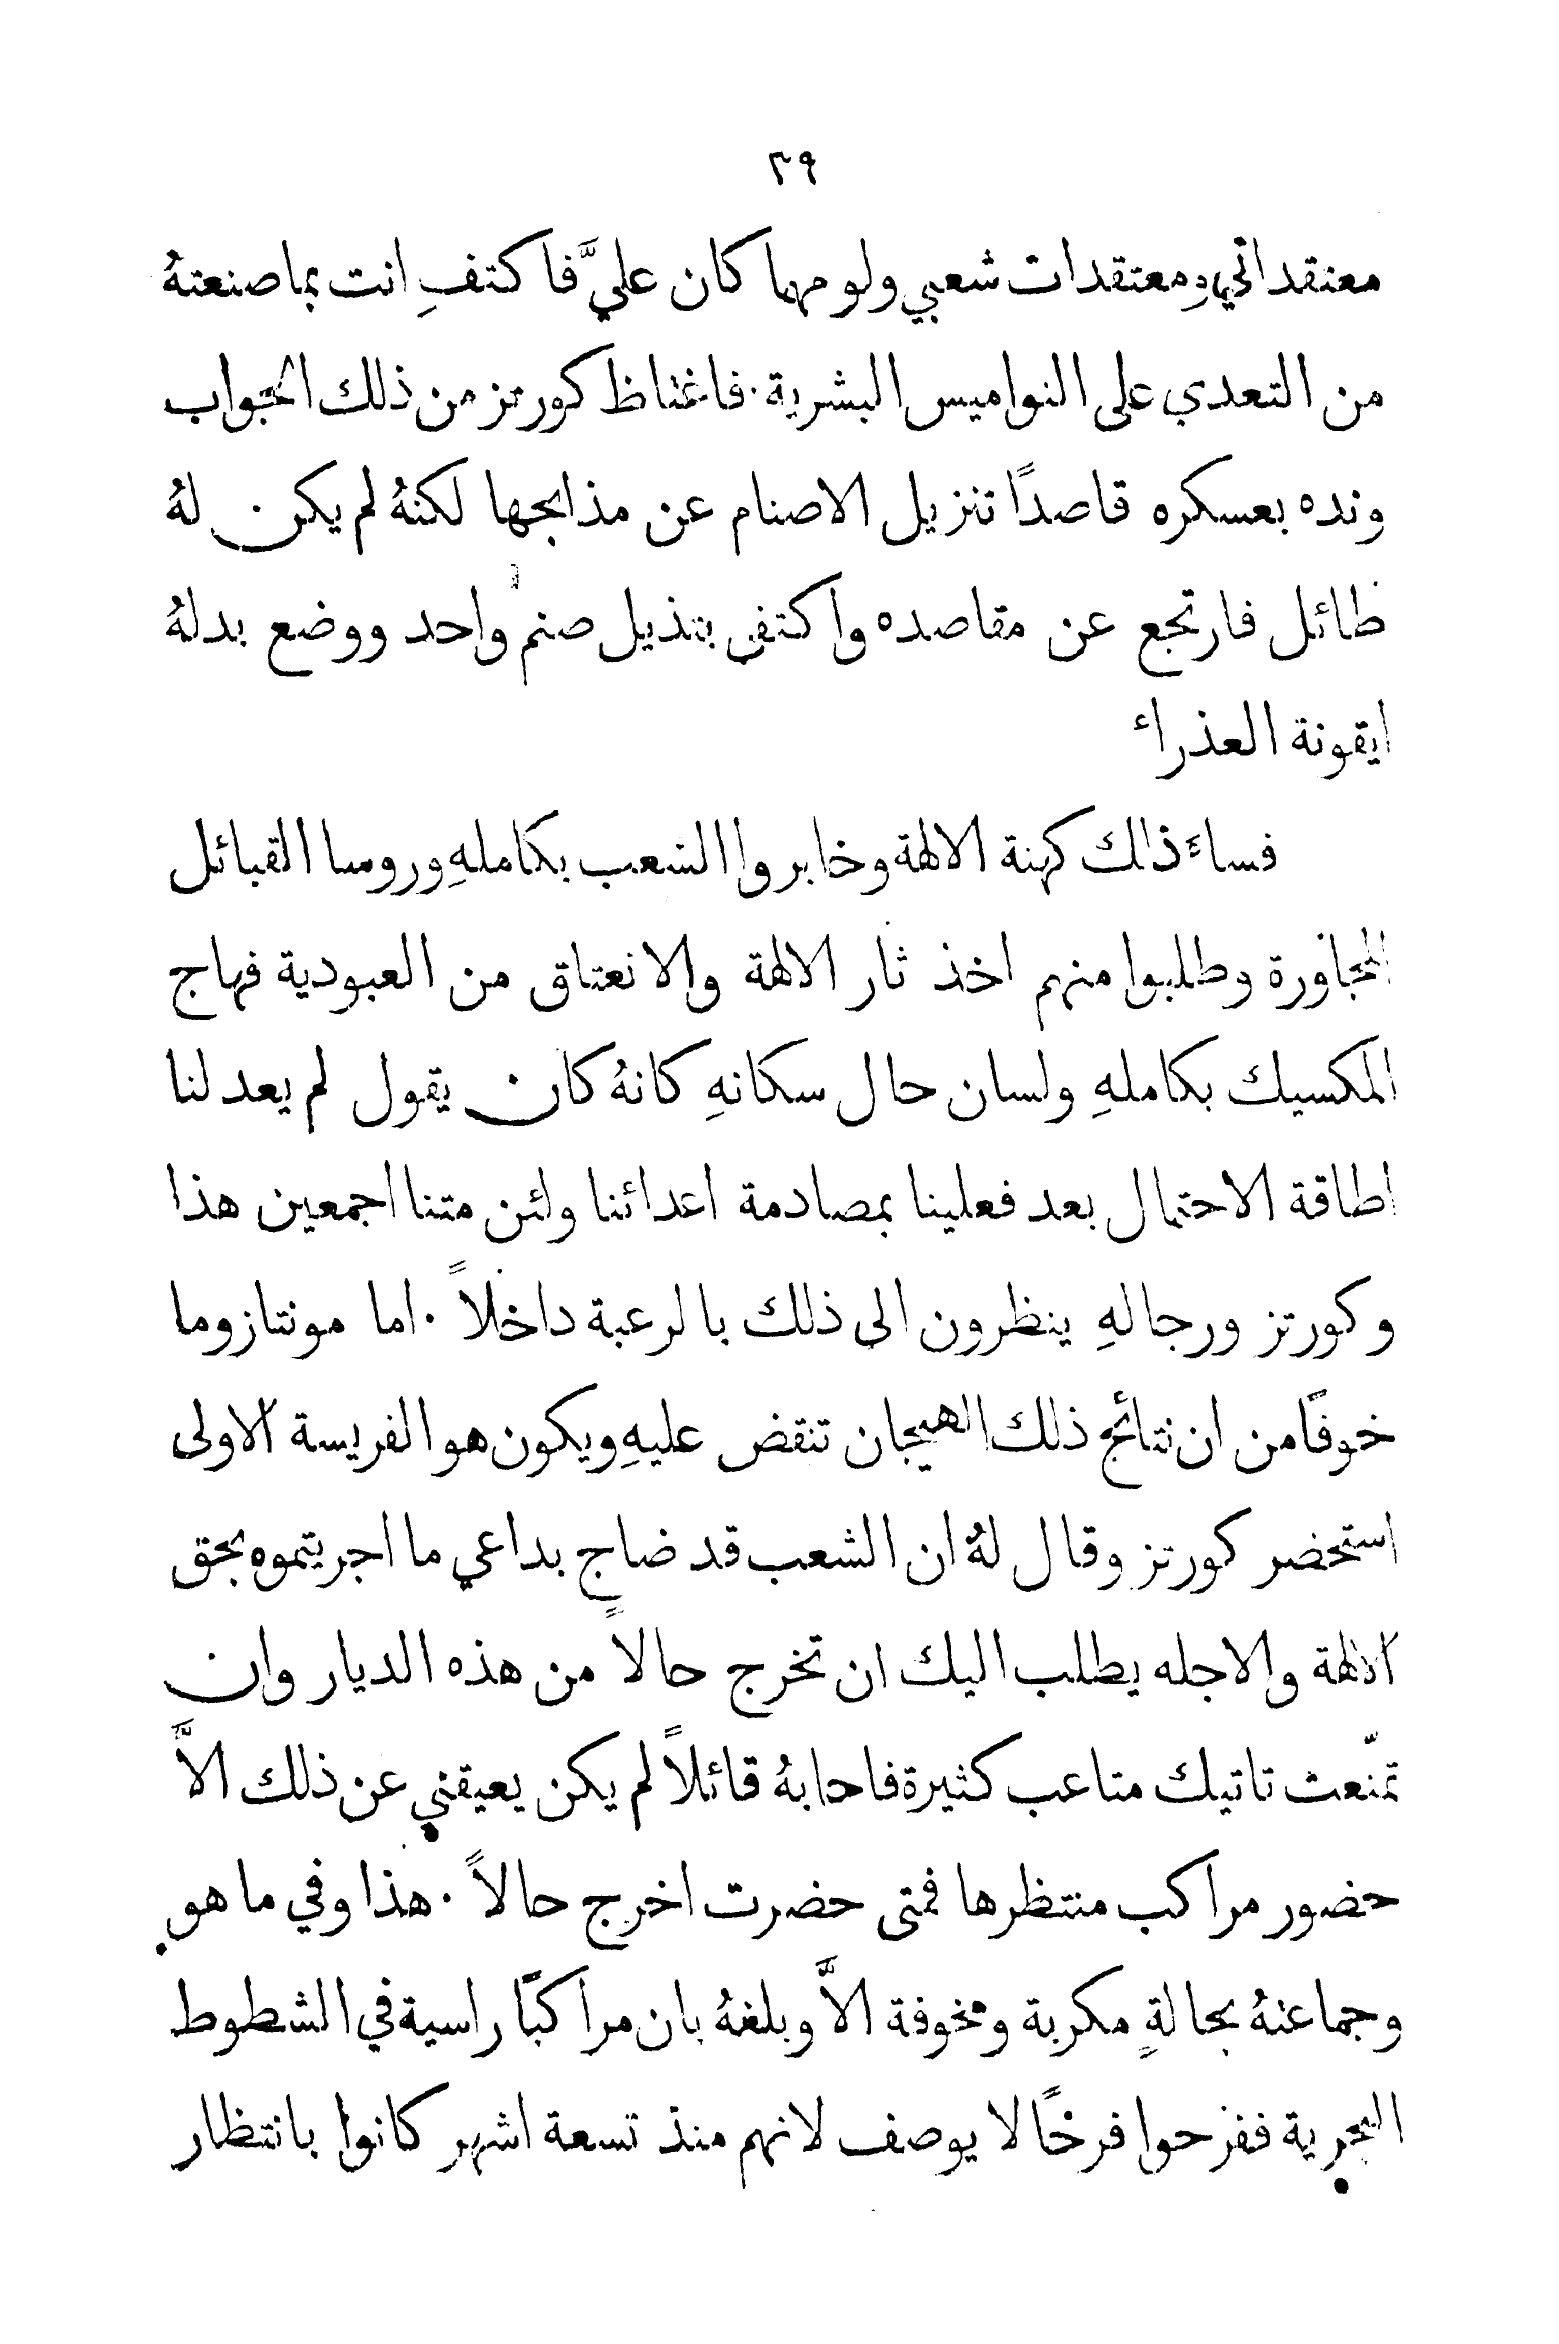 ٣٩
معتقداتي ومعتقدات شعبي ولو مهما كان عليَّ فاكتفِ انت بما صنعتهُ
من التعدي على النواميس البشرية . فاغتاظ كورتز من ذلك الجواب
ونده بعسكره قاصدًا تنزيل الاصنام عن مذابحها لكنهُ لم يكن لهُ
طائل فارتجع عن مقاصده واكتفى بتذيل صنم واحد ووضع بدلهُ
ايقونة العذراء
فساءَ ذلك كهنة الالهة وخابروا الشعب بكاملهِ وروسا القبائل
المجاورة وطلبوا منهم اخذ ثار الالهة والانعتاق من العبودية فهاج
المكسيك بكاملهِ ولسان حال سكانهِ كانهُ كان يقول لم يعد لنا
اطاقة الاحتمال بعد فعلينا بمصادمة اعدائنا ولئن متنا اجمعين هذا
وكورتز ورجالهِ ينظرون الى ذلك بالرعبة داخلاً . اما مونتازوما
خوفًا من ان نتائج ذلك الهيجان تنقض عليهِ ويكون هو الفريسة الاولى
استحضر كورتز وقال لهُ ان الشعب قد ضاج بداعي ما اجريتموه بحق
الالهة والاجله يطلب اليك ان تخرج حالاً من هذه الديار وان
تمنّعت تاتيك متاعب كثيرة فاجابهُ قائلاً لم يكن يعيقني عن ذلك الاَّ
حضور مراكب منتظرها فمتى حضرت اخرج حالاً . هذا وفي ما هو
وجماعتهُ بحالةٍ مكربة ومخوفة الاَّ وبلغهُ بان مراكبًا راسية في الشطوط
البحرية ففرحوا فرحًا لا يوصف لانهم منذ تسعة اشهر كانوا بانتظار